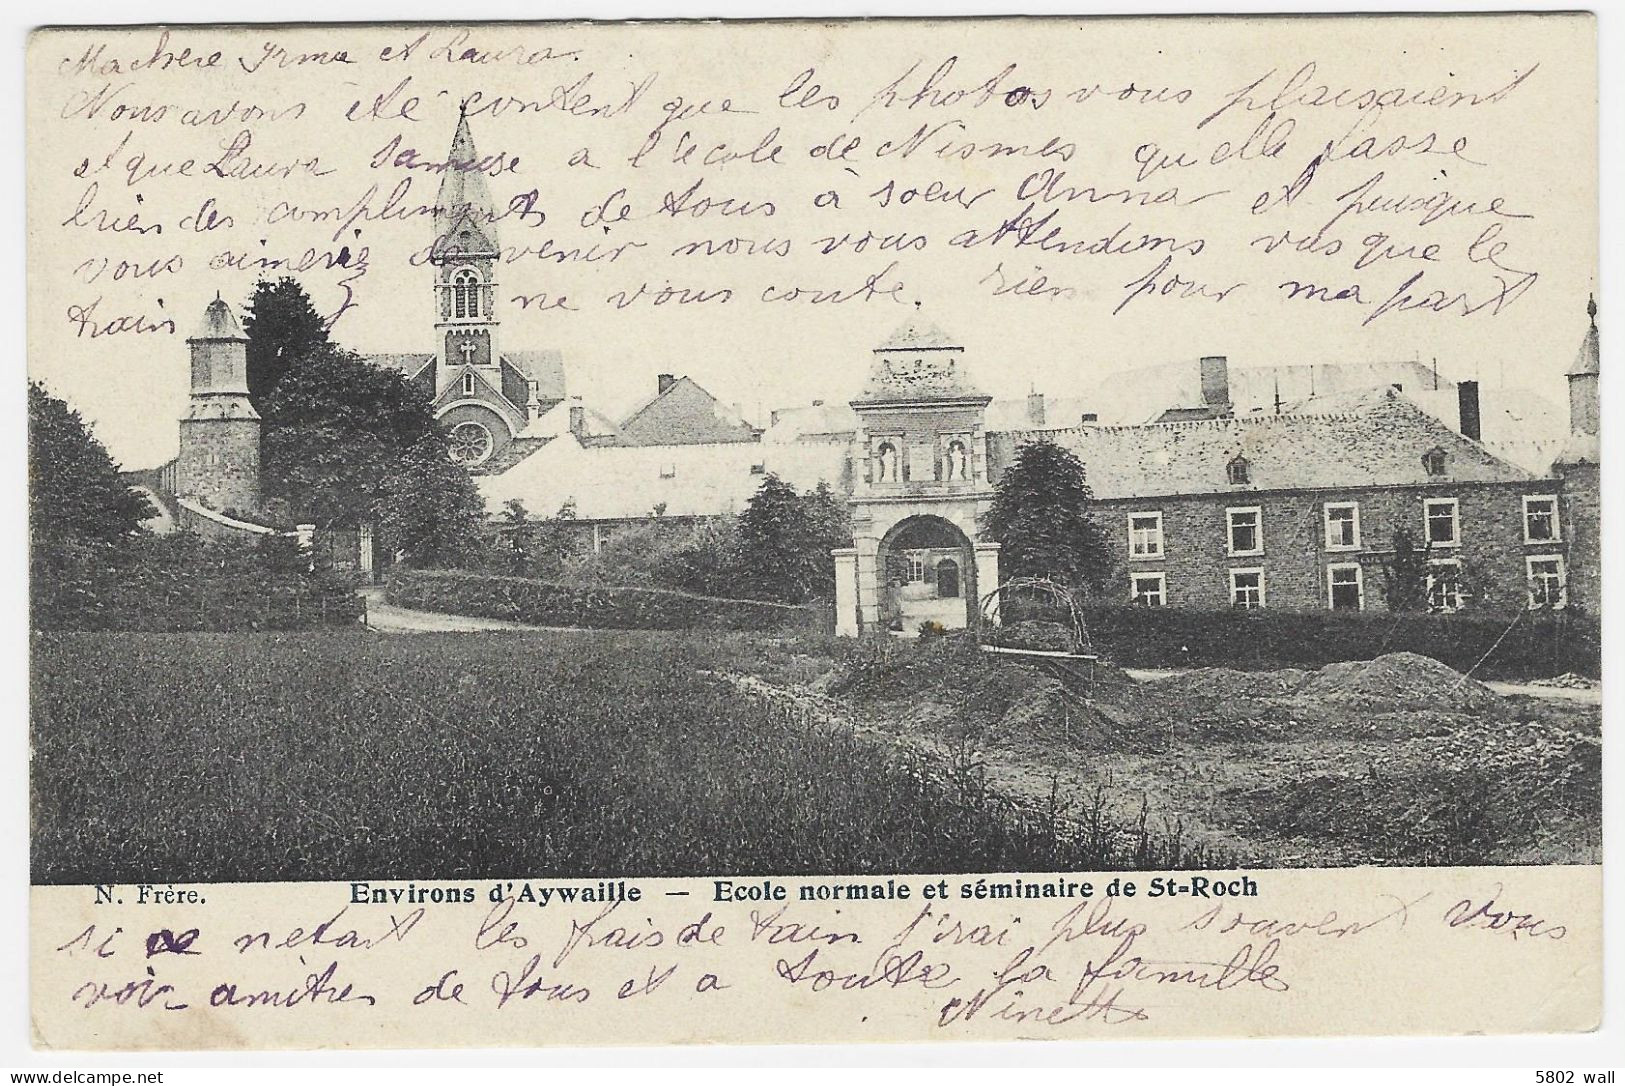 Machere Irma et Laura.
Nous avons été content que les photos vous plaisaient
et que Laura samuse a l'école de Nismes qu elle fasse
bien des compliments de tous à soeur Anna et puisque
vous aimeriez de venir nous vous attendons vus que le
train ne vous coute. rien pour ma part
N. Frère. Environs d'Aywaille — Ecole normale et séminaire de St=Roch
si ce netait les frais de tain j'irai plus souvent vous
voir amities de tous et a toute la famille
Ninette
5802 wall